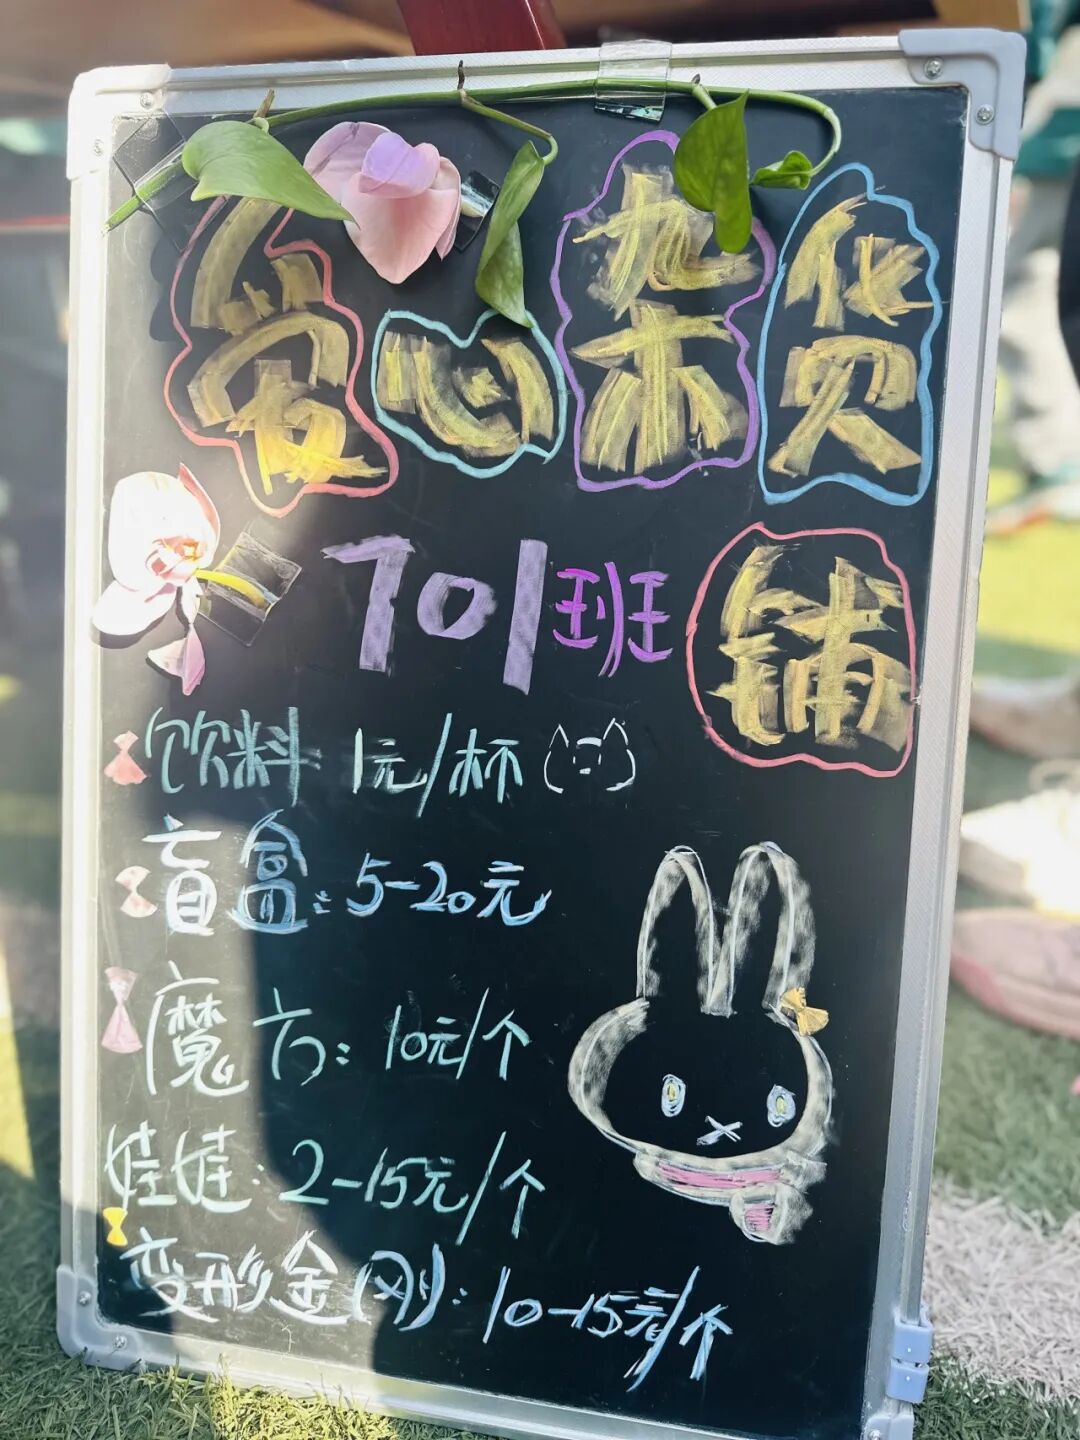 爱心杂货
701班 铺
饮料 1元/杯
盲盒：5-20元
魔方：10元/个
娃娃：2-15元/个
变形金刚：10-15元/个